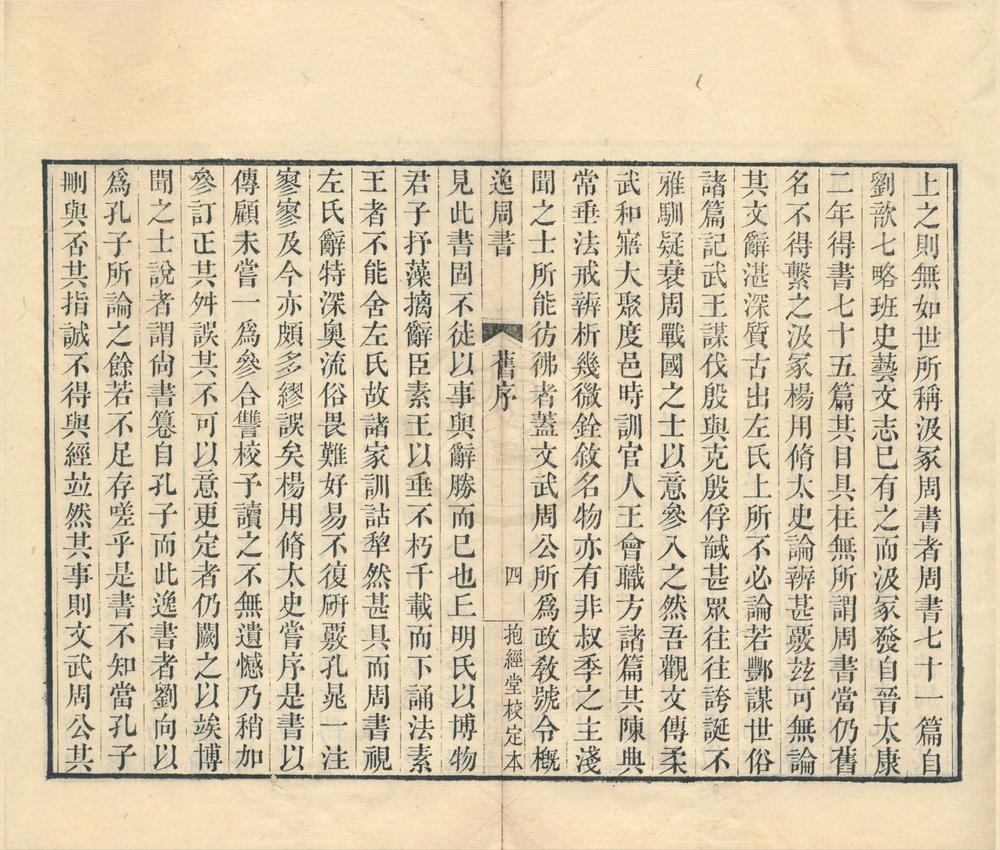 上之則無如世所稱汲冢周書者周書七十一篇自
劉歆七略班史藝文志已有之而汲冢發自晉太康
二年得書七十五篇其目具在無所謂周書當仍舊
名不得繫之汲冢楊用脩太史論辨甚覈玆可無論
其文辭湛深質古出左氏上所不必論若酆謀世俘
諸篇記武王謀伐殷與克殷俘馘甚眾往往誇誕不
雅馴疑衰周戰國之士以意參入之然吾觀文傳柔
武和寤大聚度邑時訓官人王會職方諸篇其陳典
常垂法戒辨析幾微銓敘名物亦有非叔季之主淺
聞之士所能彷彿者蓋文武周公所爲政敎號令槪
逸周書
舊序
四
抱經堂校定本
見此書固不徒以事與辭勝而已也丘明氏以博物
君子抒藻摛辭臣素王以垂不朽千載而下誦法素
王者不能舍左氏故諸家訓詁犂然甚具而周書視
左氏辭特深奧流俗畏難好易不復硏覈孔晁一注
寥寥及今亦頗多繆誤矣楊用脩太史嘗序是書以
傳顧未嘗一爲參合讐校予讀之不無遺憾乃稍加
參訂正其舛誤其不可以意更定者仍闕之以竢博
聞之士說者謂尙書纂自孔子而此逸書者劉向以
爲孔子所論之餘若不足存嗟乎是書不知當孔子
刪與否其指誠不得與經竝然其事則文武周公其